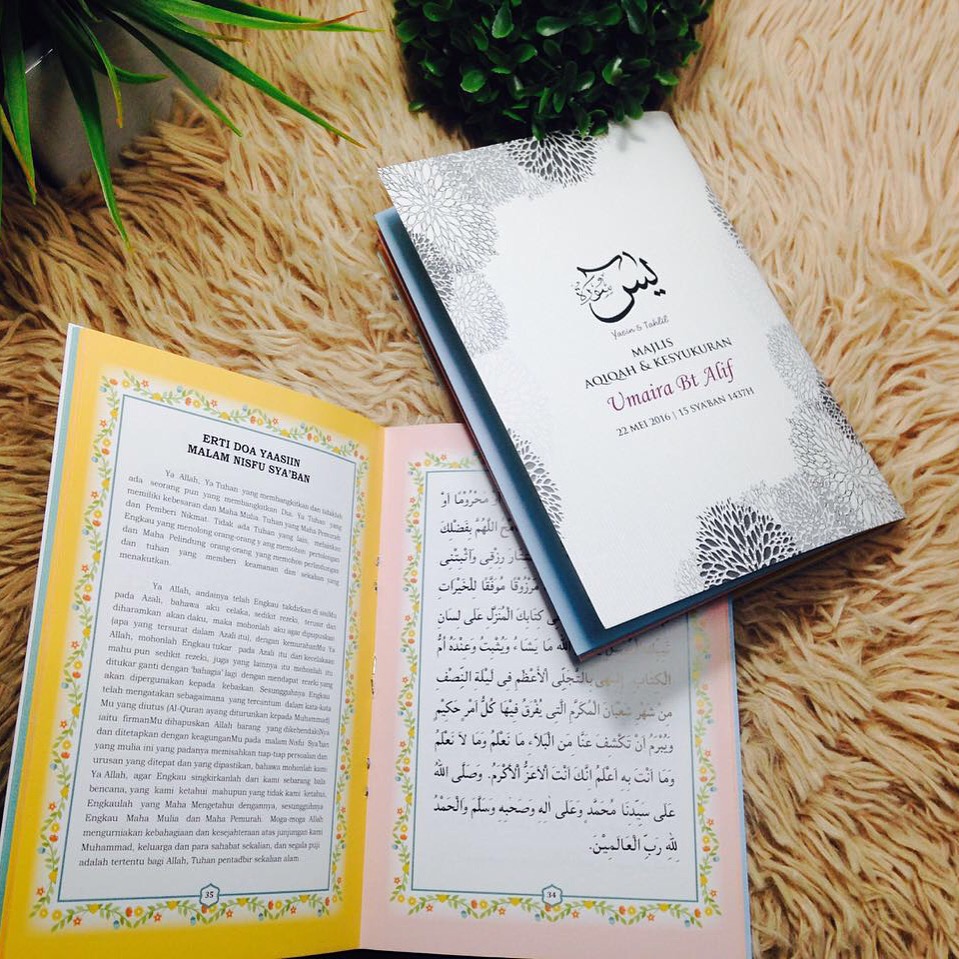 يس
سورة
Yasin & Tahlil
MAJLIS
AQIQAH & KESYUKURAN
Umaira Bt Alif
22 MEI 2016 | 15 SYA'BAN 1437H
ERTI DOA YAASIIN
MALAM NISFU SYA'BAN
Ya Allah, Ya Tuhan yang membangkitkan dan tidaklah
ada seorang pun yang membangkitkan Dia. Ya Tuhan yang
memiliki kebesaran dan Maha Mulia. Tuhan yang Maha Pemurah
dan Pemberi Nikmat. Tidak ada Tuhan yang lain, melainkan
Engkau yang menolong orang-orang yang memohon pertolongan
dan Maha Pelindung orang-orang yang memohon perlindungan
dan tuhan yang memberi keamanan dan sekalian yang
menakutkan.
Ya Allah, andainya telah Engkau takdirkan di sisiMu
pada Azali, bahawa aku celaka, sedikit rezeki, terusir dan
diharamkan akan daku, maka mohonlah aku agar dihapuskan
(apa yang tersurat dalam Azali itu), dengan kemurahanMu Ya
Allah, mohonlah Engkau tukar pada Azali itu dan kecelakaan
mahu pun sedikit rezeki, juga yang lainnya itu mohonlah itu
ditukar ganti dengan 'bahagia' lagi dengan mendapat rezeki yang
akan dipergunakan kepada kebaikan. Sesungguhnya Engkau
telah mengatakan sebagaimana yang tercantum dalam kata-kata
Mu yang diutus (Al-Quran ayang diturunkan kepada Muhammad)
iaitu firmanMu dihapuskan Allah barang yang dikehendakiNya
dan ditetapkan dengan keagunganMu pada malam Nisfu Sya'ban
yang mulia ini yang padanya memisahkan tiap-tiap persoalan dan
urusan yang ditepat dan yang dipastikan, bahawa mohonlah kami
Ya Allah, agar Engkau singkirkanlah dari kami sebarang bala
bencana, yang kami ketahui mahupun yang tidak kami ketahui,
Engkaulah yang Maha Mengetahui dengannya, sesungguhnya
Engkau Maha Mulia dan Maha Pemurah. Moga-moga Allah
mengurniakan kebahagiaan dan kesejahteraan atas junjungan kami
Muhammad, keluarga dan para sahabat sekalian, dan segala puji
adalah tertentu bagi Allah, Tuhan pentadbir sekalian alam.
35
مَحْرُوْمًا اَوْ
اللّٰهُمَّ بِفَضْلِكَ
رِزْقِى وَاَثْبِتْنِى
مَرْزُوْقًا مُوَفَّقًا لِلْخَيْرَاتِ
كِتَابِكَ الْمُنَزَّلِ عَلَى لِسَانِ
اللّٰهُ مَا يَشَاءُ وَيُثْبِتُ وَعِنْدَهُ أُمُّ
الْكِتَابِ. اِلٰهِى بِالتَّجَلِّى الْأَعْظَمِ فِى لَيْلَةِ النِّصْفِ
مِنْ شَهْرِ شَعْبَانَ الْمُكَرَّمِ الَّتِى يُفْرَقُ فِيْهَا كُلُّ اَمْرٍ حَكِيْمٍ
وَيُبْرَمُ اَنْ تَكْشِفَ عَنَّا مِنَ الْبَلَاءِ مَا نَعْلَمُ وَمَا لَا نَعْلَمُ
وَمَا اَنْتَ بِهِ اَعْلَمُ اِنَّكَ اَنْتَ الْاَعَزُّ الْاَكْرَمُ. وَصَلَّى اللّٰهُ
عَلَى سَيِّدِنَا مُحَمَّدٍ وَعَلَى اٰلِهِ وَصَحْبِهِ وَسَلَّمَ وَالْحَمْدُ
لِلّٰهِ رَبِّ الْعَالَمِيْنَ.
34